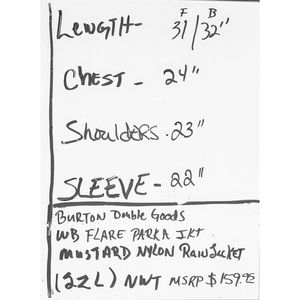 F B
LENGTH- 31/32"
CHEST - 24"
Shoulders - 23"
SLEEVE - 22"
BURTON Double Goods
WB FLARE PARKA JKT
MUSTARD NYLON RAIN JACKET
(2ZL) NWT MSRP $159.95